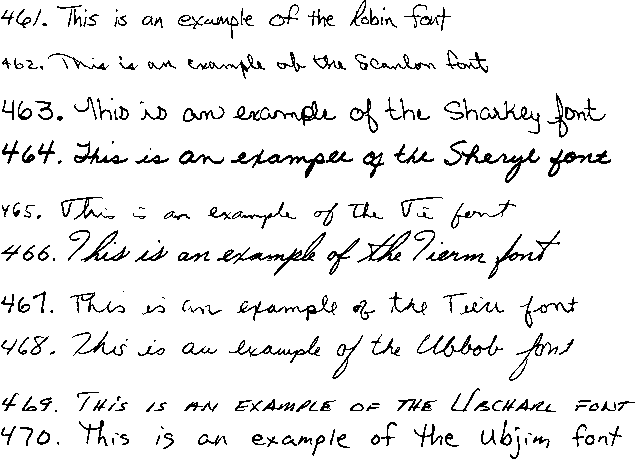 461. This is an example of the Robin font
462. This is an example of the Scanlon font
463. This is an example of the Sharkey font
464. This is an example of the Sheryl font
465. This is an example of the Ti font
466. This is an example of the Tierm font
467. This is an example of the Tieu font
468. This is an example of the Ubbob font
469. THiS IS AN EXAMPLE OF THE UBCHARL FONT
470. This is an example of the Ubjim font